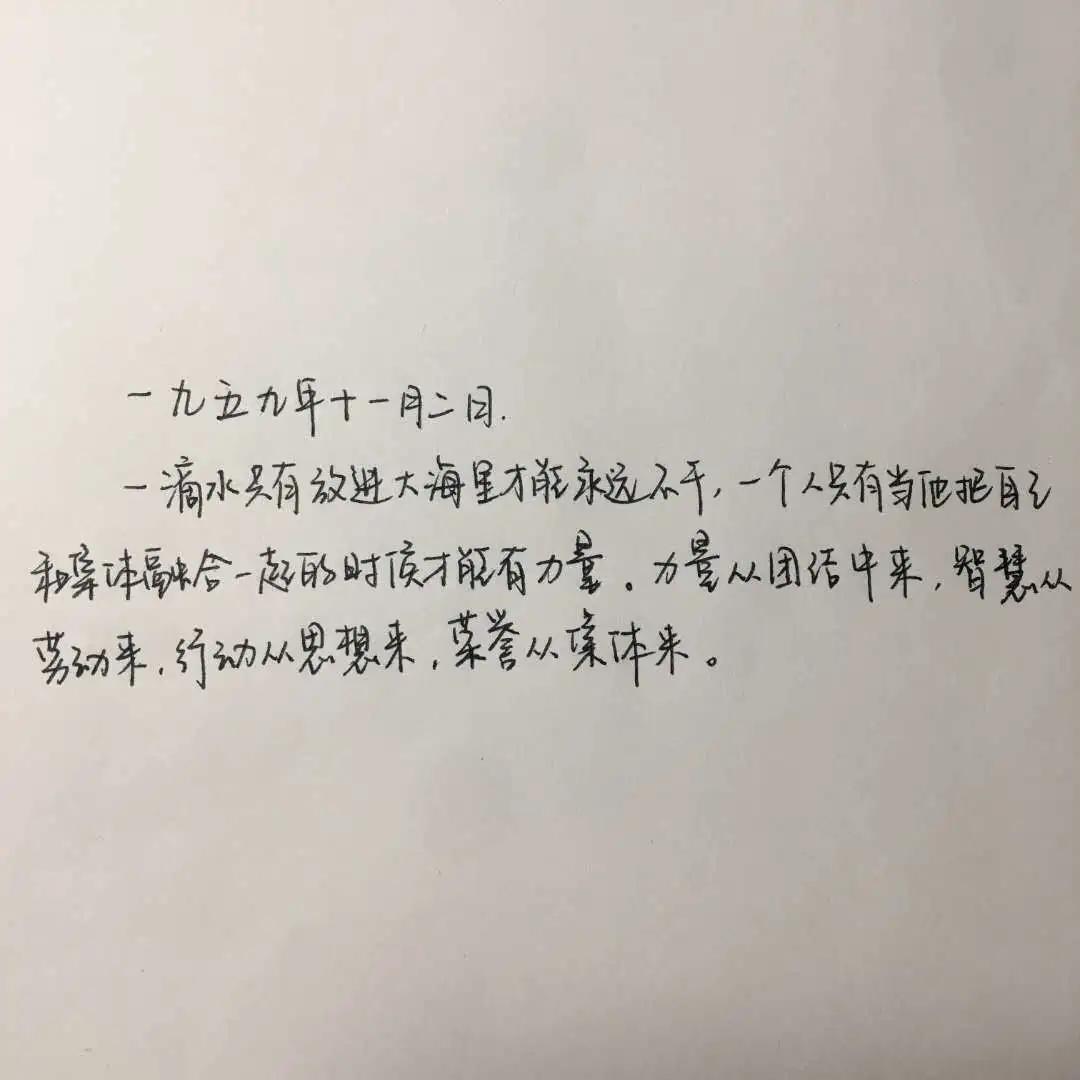 一九五九年十一月二日.
一滴水只有放进大海里才能永远不干,一个人只有当他把自己
和集体融合一起的时候才能有力量。力量从团结中来,智慧从
劳动来,行动从思想来,荣誉从集体来。